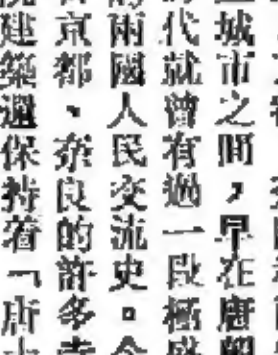 城市之間，早在唐朝
代就曾有過一段極盛
兩國人民交流史。今
京都、奈良的許多寺
建築還保持着「唐